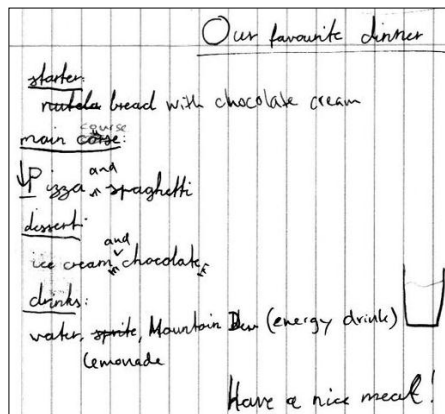 Our favourite dinner
starter:
nutela bread with chocolate cream
course
main corse:
Pizza and spaghetti
dessert:
ice cream and chocolate
drinks:
water, sprite, Mountain Dew (energy drink)
Lemonade
Have a nice meal!